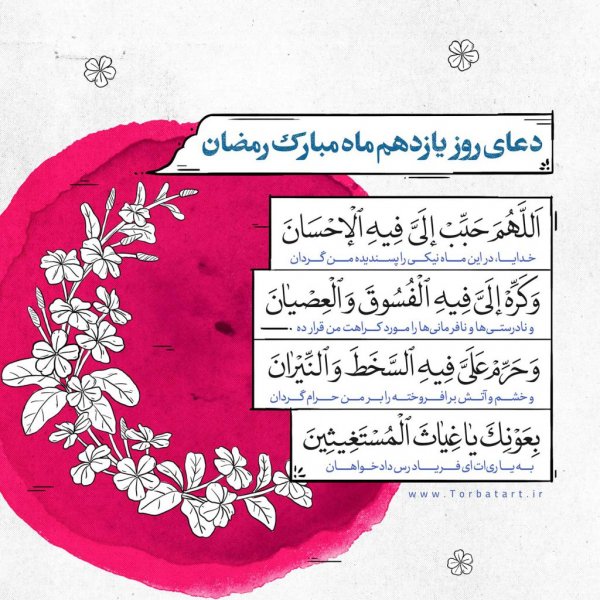 دعای روز یازدهم ماه مبارک رمضان
اَللَّهُمَ حَبِّبْ إلَیَّ فِیهِ الْإحْسَانَ
خدایا، در این ماه نیکی را پسندیده من گردان
وَ كَرِّهْ إلَیَّ فِیهِ الْفُسُوقَ وَ الْعِصْیَانَ
و نادرستی‌ها و نافرمانی‌ها را مورد کراهت من قرار ده
وَ حَرِّمْ عَلَیَّ فِیهِ السَّخَطَ وَ النِّیْرَانَ
و خشم و آتش برافروخته را بر من حرام گردان
بِعَوْنِكَ یَا غِیَاثَ الْمُسْتَغِیثِینَ
به یاری‌ات ای فریادرس دادخواهان
www.Torbatart.ir